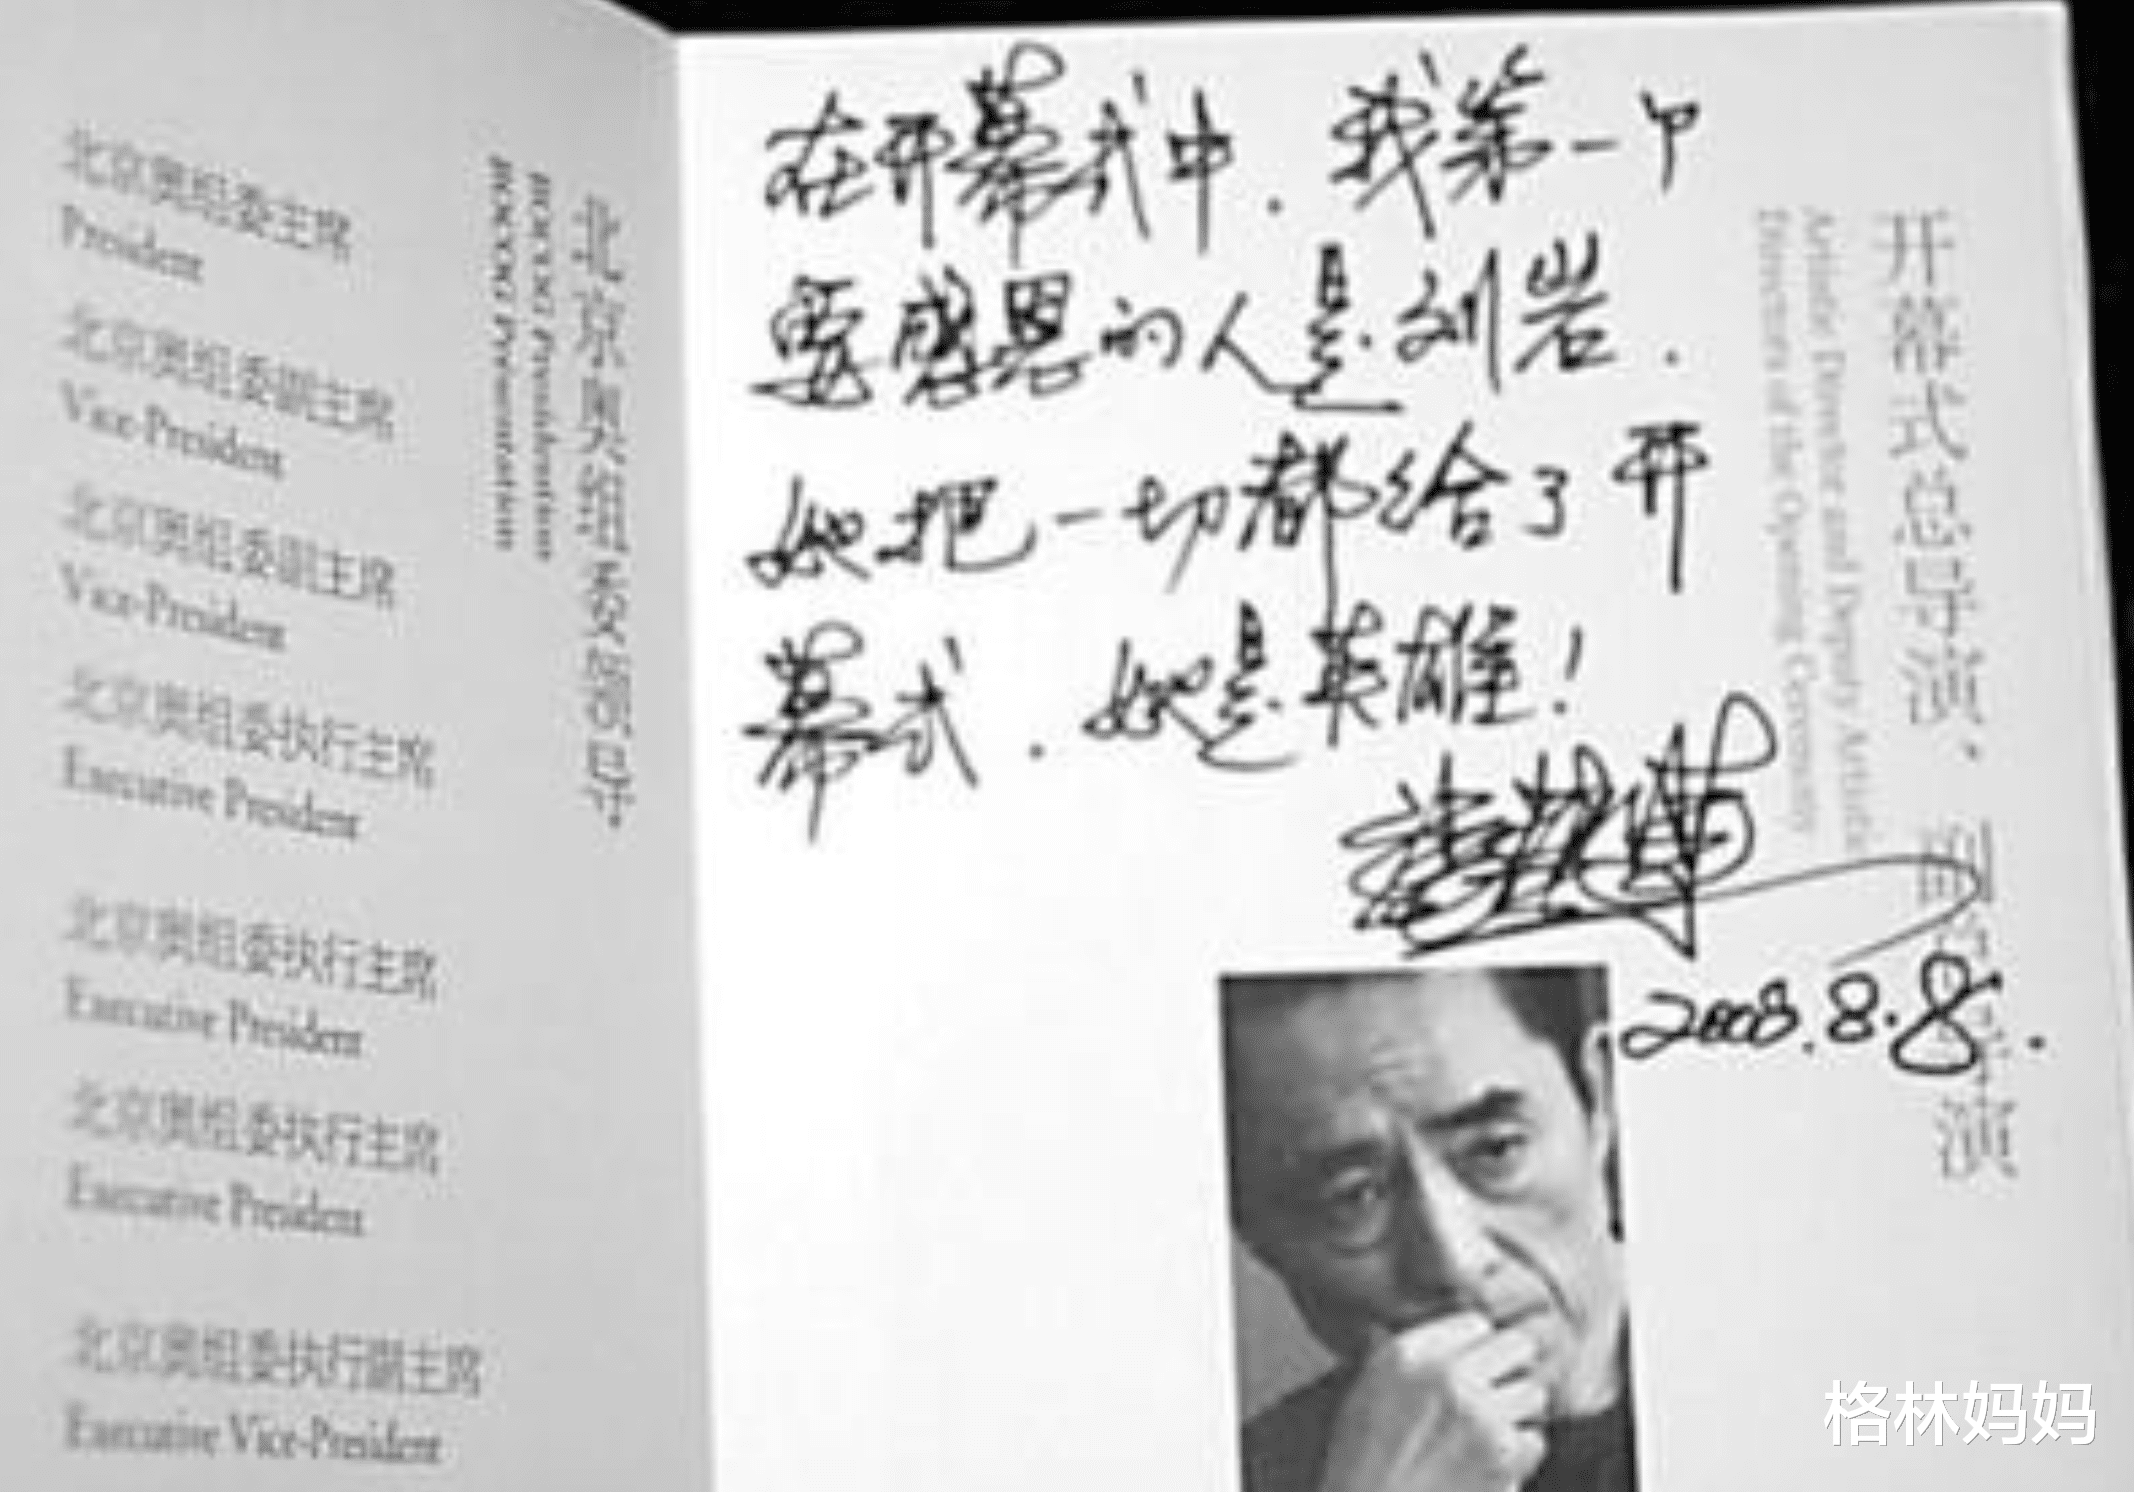 北京奥组委主席
President
北京奥组委副主席
Vice-President
北京奥组委副主席
Vice-President
北京奥组委执行主席
Executive President
北京奥组委执行主席
Executive President
北京奥组委执行主席
Executive President
北京奥组委执行副主席
Executive Vice-President
BOCOG Presentation
在开幕式中.我第一个
要感恩的人是刘岩.
她把一切都给了开
幕式.她是英雄!
2008.8.8.
开幕式总导演、副总导演
Artistic Director and Deputy Artistic
Directors of the Opening Ceremony
格林妈妈